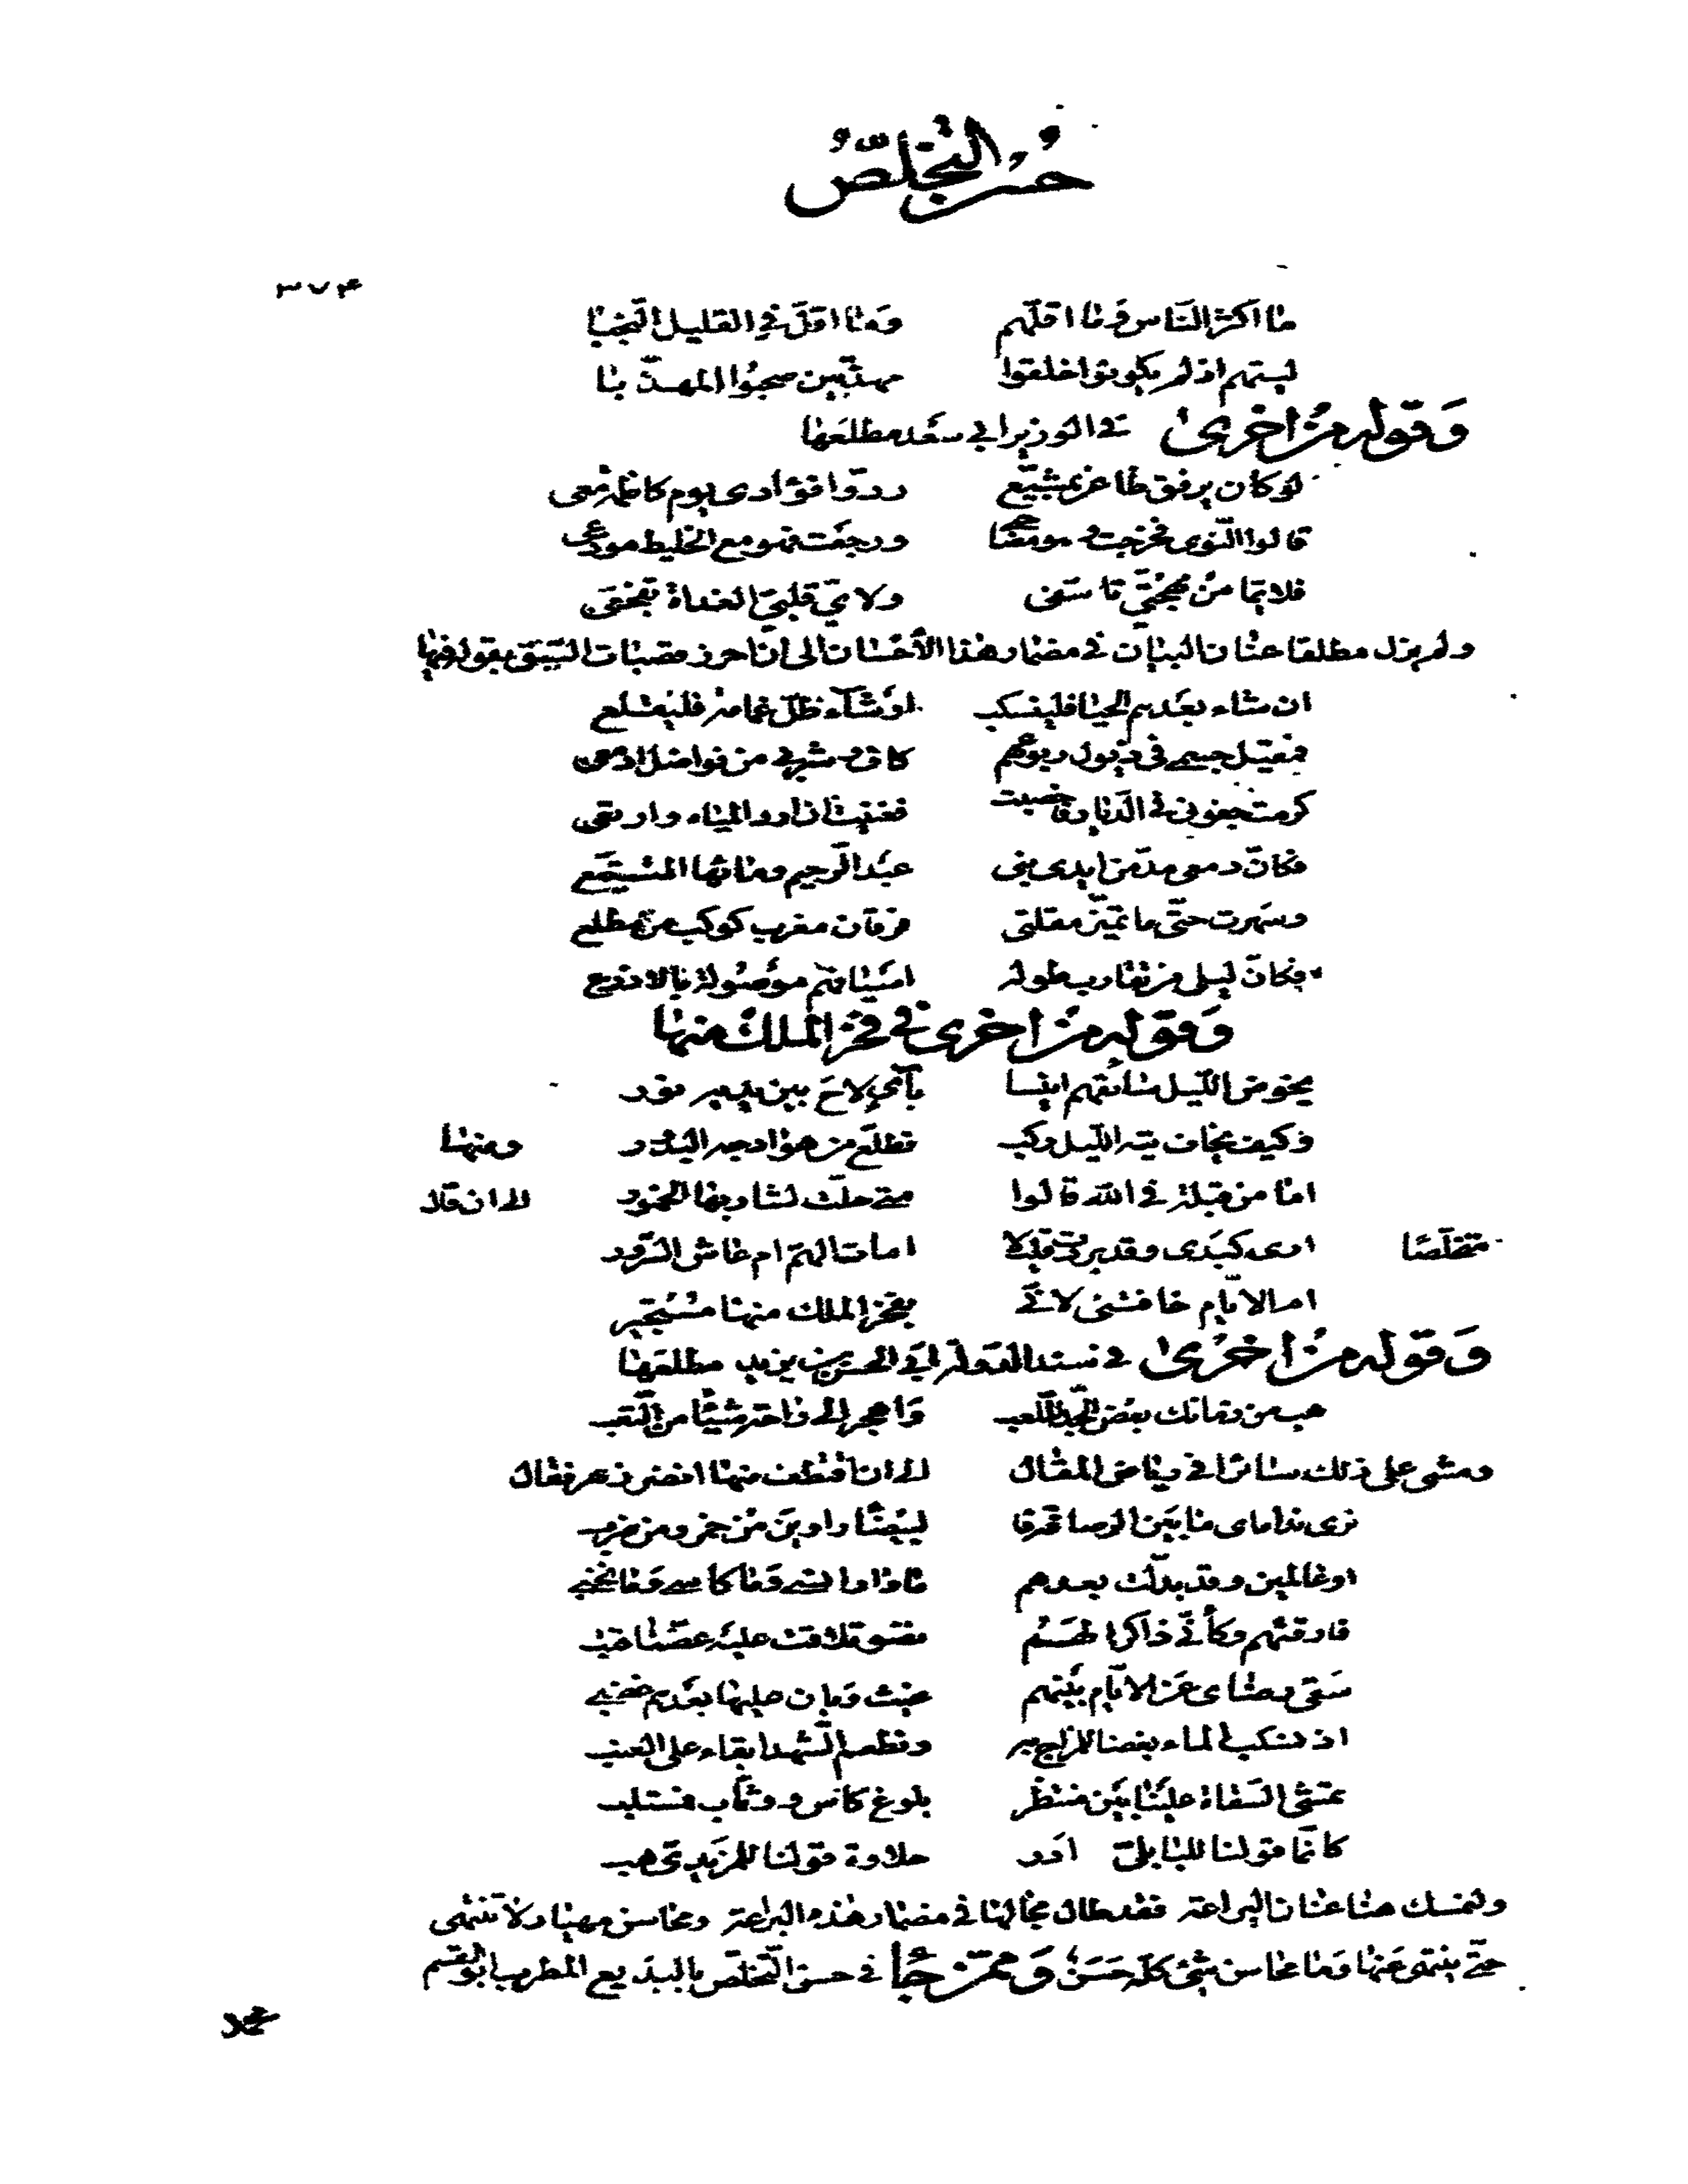 حُسن التخلّصُ
٣٧٤
ما اكثر الناس وما اقلّهم وَما اقلّ في القليل النّجبا
ليتهم اذ لم يكونوا خلقوا مهذّبين صحبُوا المهذّبا
وَقوله مِن اخرى في الوزير ابي سعَد مطلعَها
لو كان يرفق ظاعن بمشيّع ردّوا فؤادى يوم كاظمة معى
قالوا النّوى فخرجت وهو مصاحبي ورجعَت وهو مع الخليط مودعى
فلايّما من مهجتي تاسّفى ولايّ قلبيّ الغداة تفجّعى
ولم يزل مطلقا عنان البيان في مضمار هذا الأحسان الى ان احرز مقصبات السّبق بقوله فيها
ان شاء بعَدهم الحيا فلينسكب اوشآء ظلّ غمامة فليقشع
فمقيل جسمى في ذيول ربوعهم كاف وشربى من فواضل ادمعى
كرمت جفونى في الدّيار فاخصبت فغنيت ان ارد المياه وارتعى
فكانّ دمعى مدّ من ايدى بنى عبُد الرّحيم ومائها المتنبّع
وسهرت حتّى ما تميّز مقلتى فرقان مغرب كوكب من مطلع
فكانّ ليلى من تقارب طوله اسَيافهم موصُولة بالاذرع
وَقوله مِن اخرى في فخر الملك منها
يخوض اللّيل سائقهم انيسا بآىٍ لاحَ بين يديه نور
وكيف يخاف تيه اللّيل ركب تطلّع من هوادجه البدور ومنها
اما من قبلة في اللّه قالوا متى حلّت لشاربها الخمور الى ان قال
متخلّصًا ارى كبدى وقد بردت قليلا امات الهمّ ام عاش السّرور
ام الايّام خافتنى لانّى بفخر الملك منها مستجير
وَقوله مِن اخرىٰ في سند الدولة ابي الحسن بن مزيد مطلعَها
هب من زمانك بعض الجدّ للّعب وَاهجر الى راحة شيئًا من التّعب
ومشى على ذلك سائرا في رياض المقال الى ان اقتطف منها اغضر زهر فقال
ترى نداماى ما بين الرصافة فا لبيضا راوين من خمر ومن ضرب
او عالمين وقد بدّلت بعدهم ما دار انسى وَما كاسى وَما نخبى
فارقتهم وكأنّى ذاكرا لهم نضو تلاقت عليه عضّتا قتب
سَقى رضاى عَن الايّام بينهم غيث وَبان عليها بعَدهم غضبى
اذ نسكب الماء بغضا للمزاج به ونطعم الشّهد ابقاء على العنب
تمشى السّقاة علينا بين منتظر بلوغ كاس ووثّاب فمستلب
كانّما قولنا للبابلىّ ادر حلاوة قولنا للمزيدىّ هب
ولنمسك هنا عنان البراعة فقد طال مجالها في مضمار هذه البراعة ومحاسن مهيار لا تنتهى
حتّى ينتهى عَنها وَما محاسن شئ كلّه حَسَن وَممّن جَا في حسن التّخلّص بالبديع المطرب ابو القسم
محمد